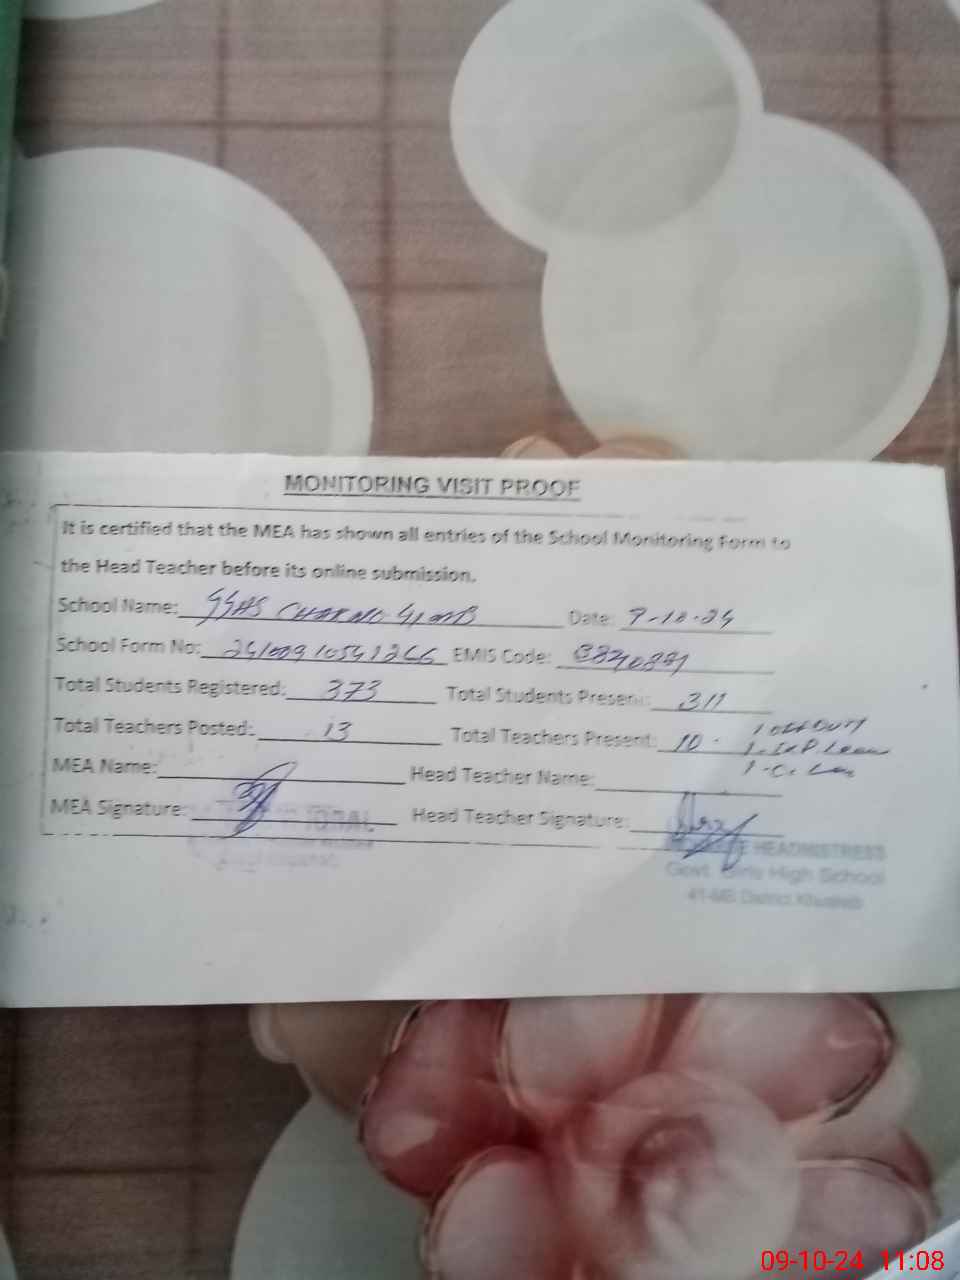 MONITORING VISIT PROOF
It is certified that the MEA has shown all entries of the School Monitoring Form to
the Head Teacher before its online submission.
School Name: GGHS CHAK NO 41 MB Date: 9-10-24
School Form No: EMIS Code:
Total Students Registered: 373 Total Students Present: 311
Total Teachers Posted: 13 Total Teachers Present: 10 1 off Duty
1-Exp Leave
1-C. Leave
MEA Name: Head Teacher Name:
MEA Signature: Head Teacher Signature:
HEADMISTRESS
Govt. Girls High School
41-MB District Khushab
09-10-24 11:08